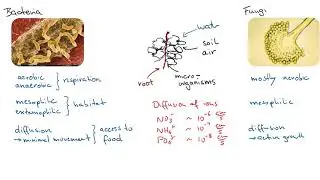 Bacteria
Fungi
water
soil
air
root
micro-
organisms
aerobic
anaerobic } respiration
mostly aerobic
mesophilic
extremophilic } habitat
mesophilic
Diffusion of ions
NO₃⁻ ~ 10⁻⁶ cm/s
NH₄⁺ ~ 10⁻⁷ cm/s
PO₄³⁻ ~ 10⁻⁸ cm/s
diffusion
→ minimal movement } access to food
diffusion
→ active growth